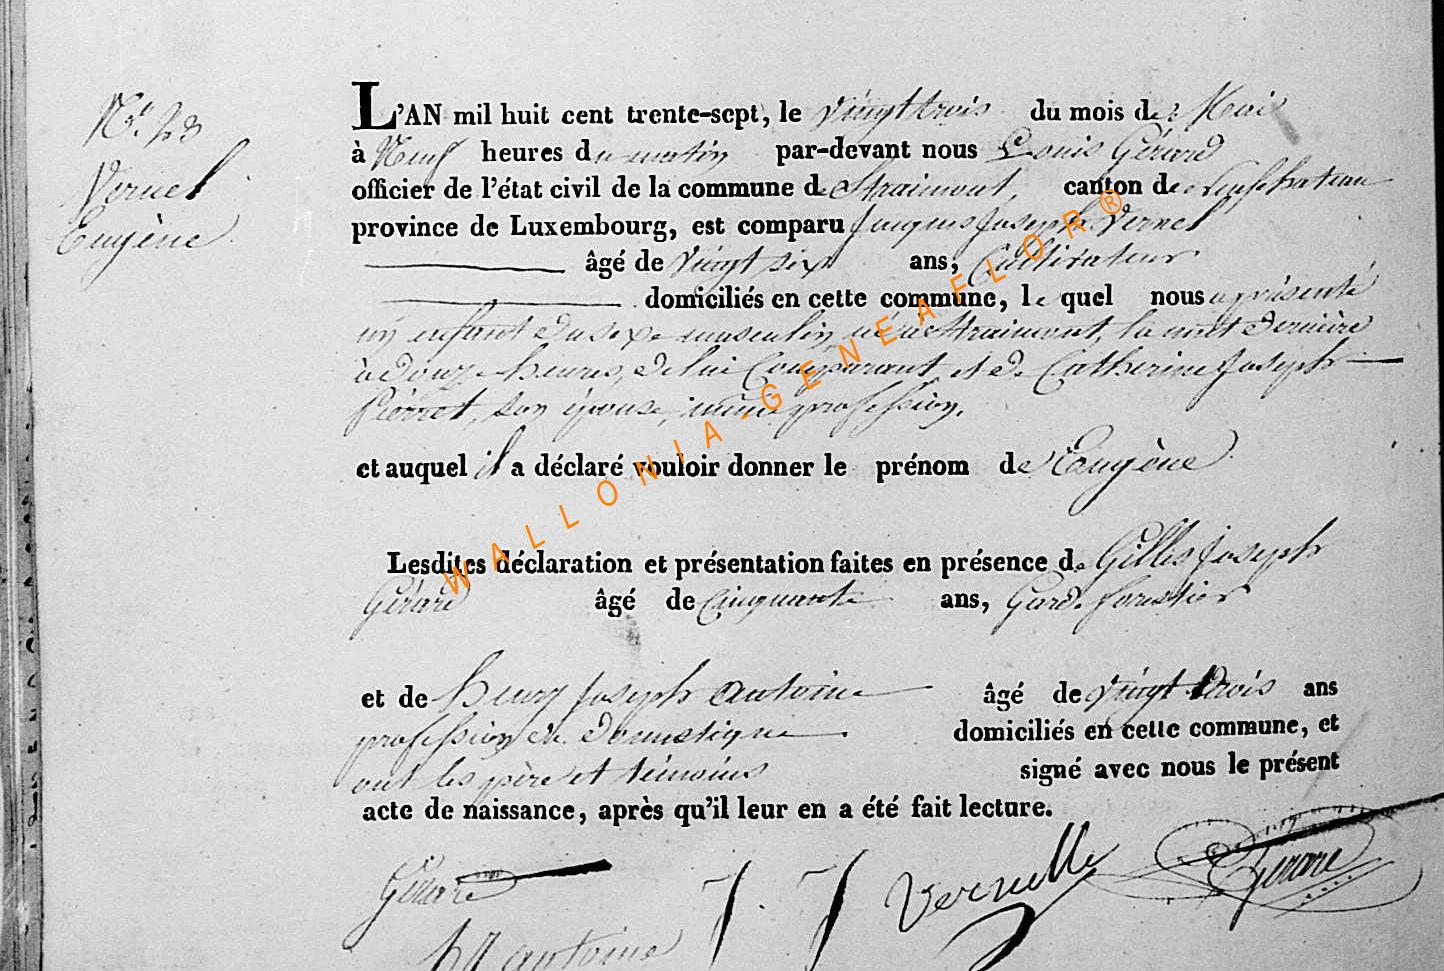 No. 23
Vernel
Eugène
L'AN mil huit cent trente-sept, le vingt trois du mois de Mai
à Neuf heures du matin par-devant nous Louis Gérard
officier de l'état civil de la commune de Straimont, canton de neufchateau
province de Luxembourg, est comparu Jacques Joseph Vernel
âgé de vingt six ans, Cultivateur
domiciliés en cette commune, le quel nous a présenté
un enfant du sexe masculin, né à Straimont, la nuit dernière
à douze heures, de lui Comparant et de Catherine Joseph
Pierret, son épouse, même profession.
et auquel il a déclaré vouloir donner le prénom de Eugène
Lesdites déclaration et présentation faites en présence de Gilles Joseph
Gérard âgé de Cinquante ans, Garde forestier
et de henry Joseph antoine âgé de vingt trois ans
profession de Domestique domiciliés en cette commune, et
ont les père et témoins signé avec nous le présent
acte de naissance, après qu'il leur en a été fait lecture.
Gérard J. J Vernelle Gérard
hJ antoine
WALLONIA-GENEAFLOR®